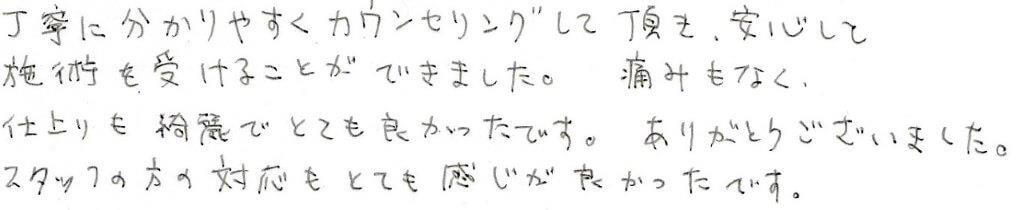 丁寧に分かりやすくカウンセリングして頂き、安心して
施術を受けることができました。 痛みもなく、
仕上りも綺麗でとても良かったです。 ありがとうございました。
スタッフの方の対応もとても感じが良かったです。